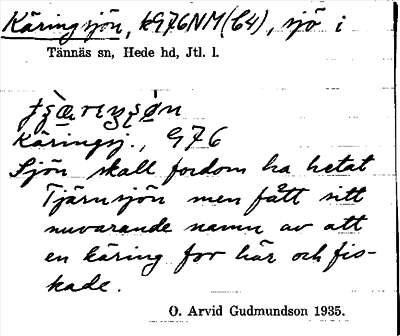 Käringsjön, G976NM(C4), sjö i
Tännäs sn, Hede hd, Jtl. l.
Käringsj., G76
Sjön skall fordom ha hetat
Tjärnsjön men fått sitt
nuvarande namn av att
en käring for här och fis-
kade.
O. Arvid Gudmundson 1935.